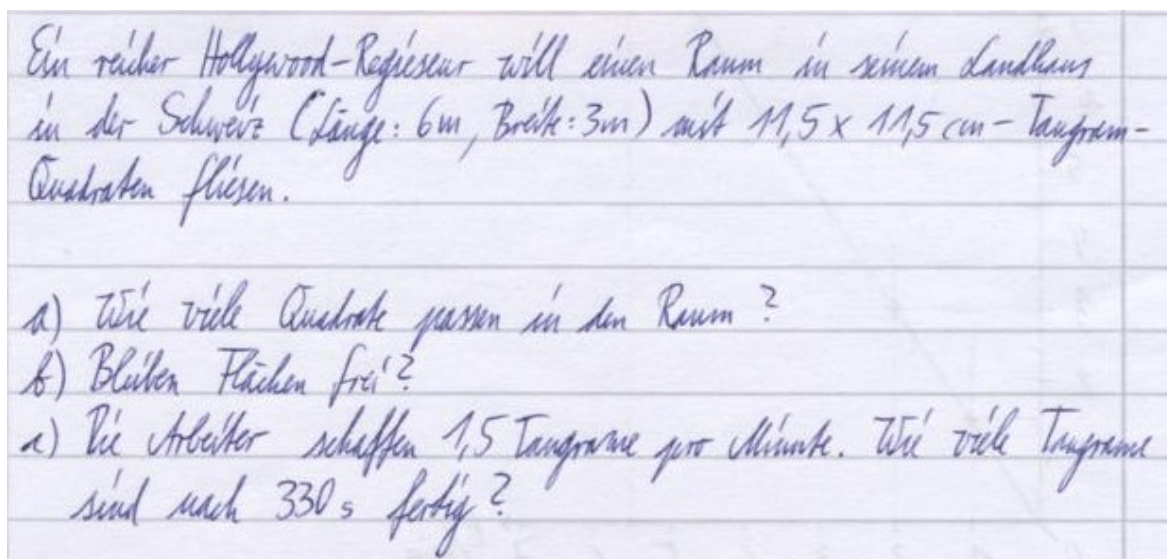 Ein reicher Hollywood-Regieseur will einen Raum in seinem Landhaus
in der Schweiz (Länge: 6m, Breite: 3m) mit 11,5 x 11,5 cm - Tangram-
Quadraten fliesen.
a) Wie viele Quadrate passen in den Raum?
b) Bleiben Flächen frei?
c) Die Arbeiter schaffen 1,5 Tangrame pro Minute. Wie viele Tangrame
sind nach 330 s fertig?